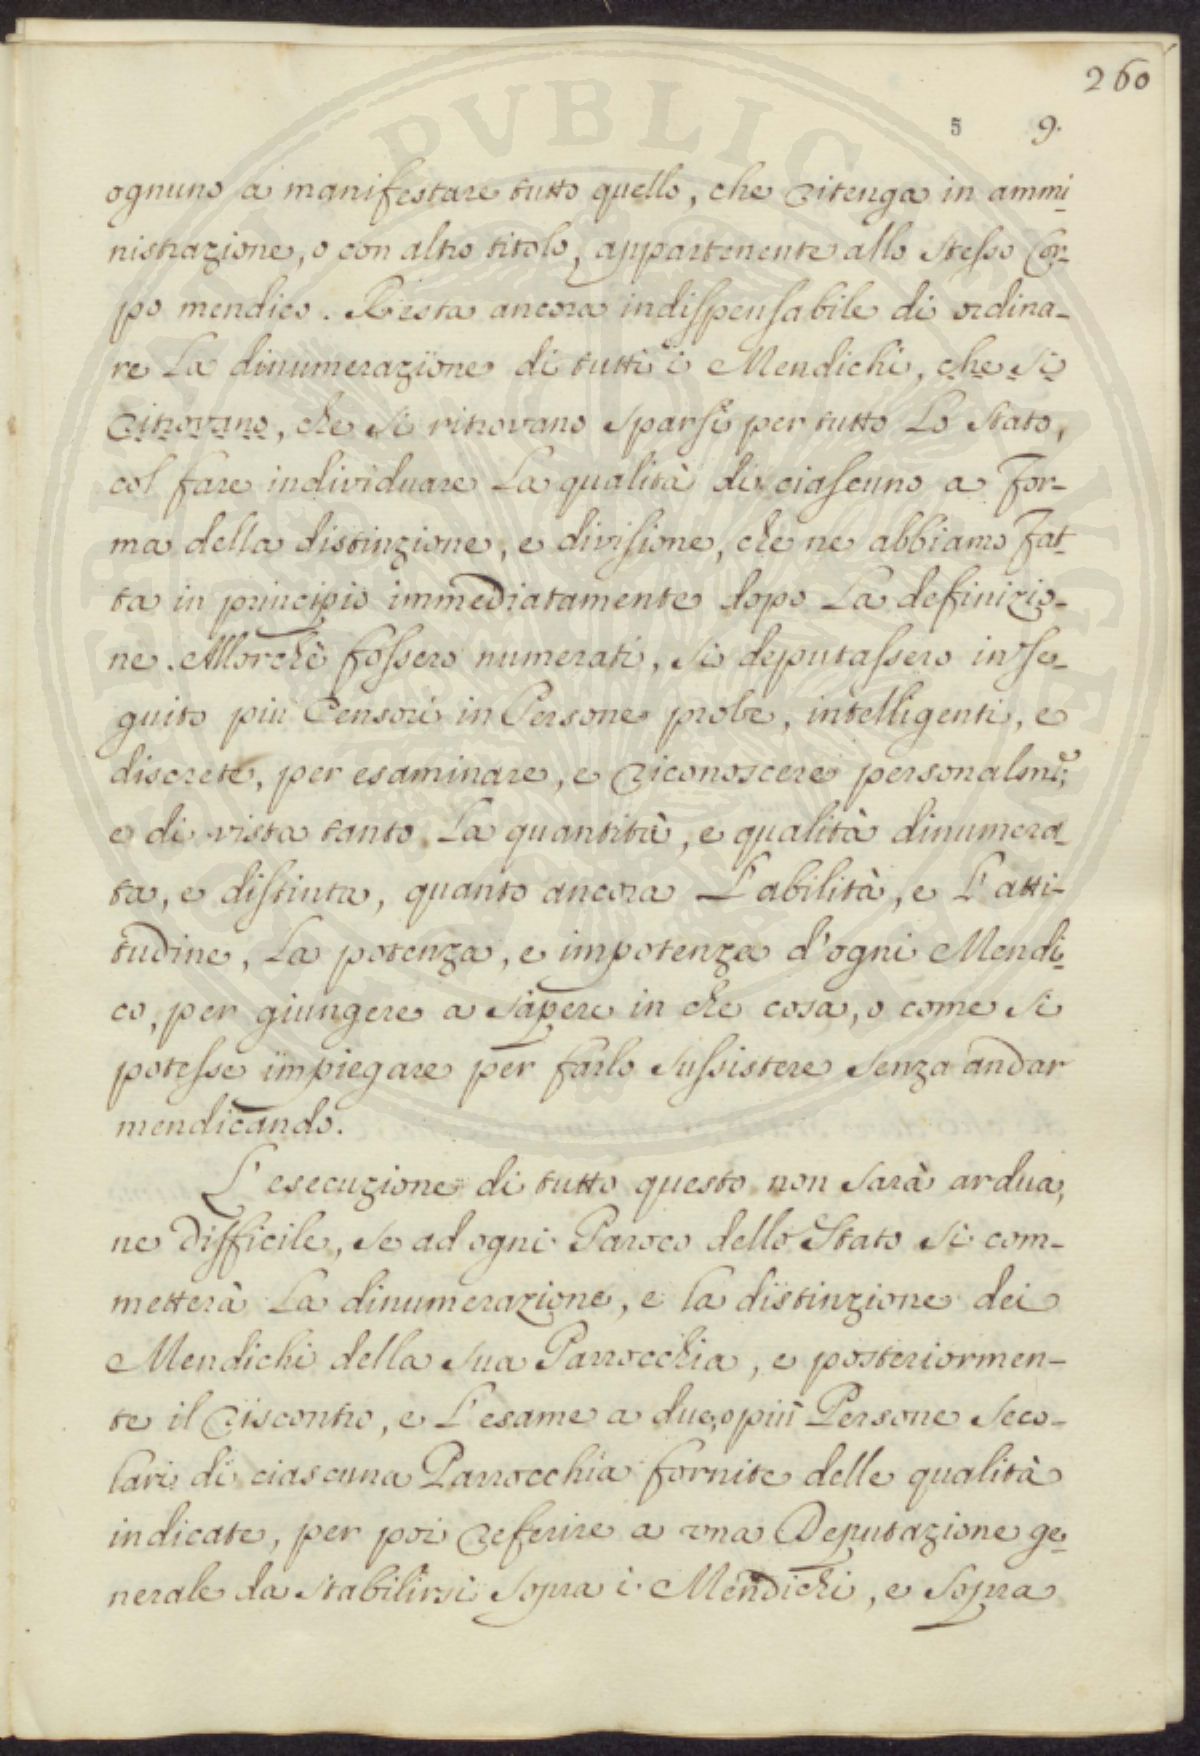 260
5 9.
ognuno a manifestare tutto quello, che ritenga in ammi
nistrazione, o con altro titolo, appartenente allo stesso Cor-
po mendico. Resta ancora indispensabile di ordina-
re la dinumerazione di tutti i Mendichi, che si
ritrovano, che si ritrovano sparsi per tutto lo Stato,
col fare individuare la qualità di ciascuno a for-
ma della distinzione, e divisione, che ne abbiamo fat-
ta in principio immediatamente dopo la definizio-
ne. Allorchè fossero numerati, si deputassero in se-
guito piu Censori in Persone probe, intelligenti, e
discrete, per esaminare, e riconoscere personalm̃e,
e di vista tanto la quantità, e qualità dinumera-
ta, e distinta, quanto ancora l'abilità, e l'atti-
tudine, la potenza, e impotenza d'ogni Mendi-
co, per giungere a sapere in che cosa, o come si
potesse impiegare per farlo sussistere senza andar
mendicando.
L'esecuzione di tutto questo non sarà ardua,
ne difficile, se ad ogni Paroco dello Stato si com-
metterà la dinumerazione, e la distinzione dei
Mendichi della sua Parrocchia, e posteriormen-
te il riscontro, e l'esame a due, o più Persone seco-
lari di ciascuna Parrocchia fornite delle qualità
indicate, per poi referire a una Deputazione ge-
nerale da stabilirsi sopra i Mendichi, e sopra